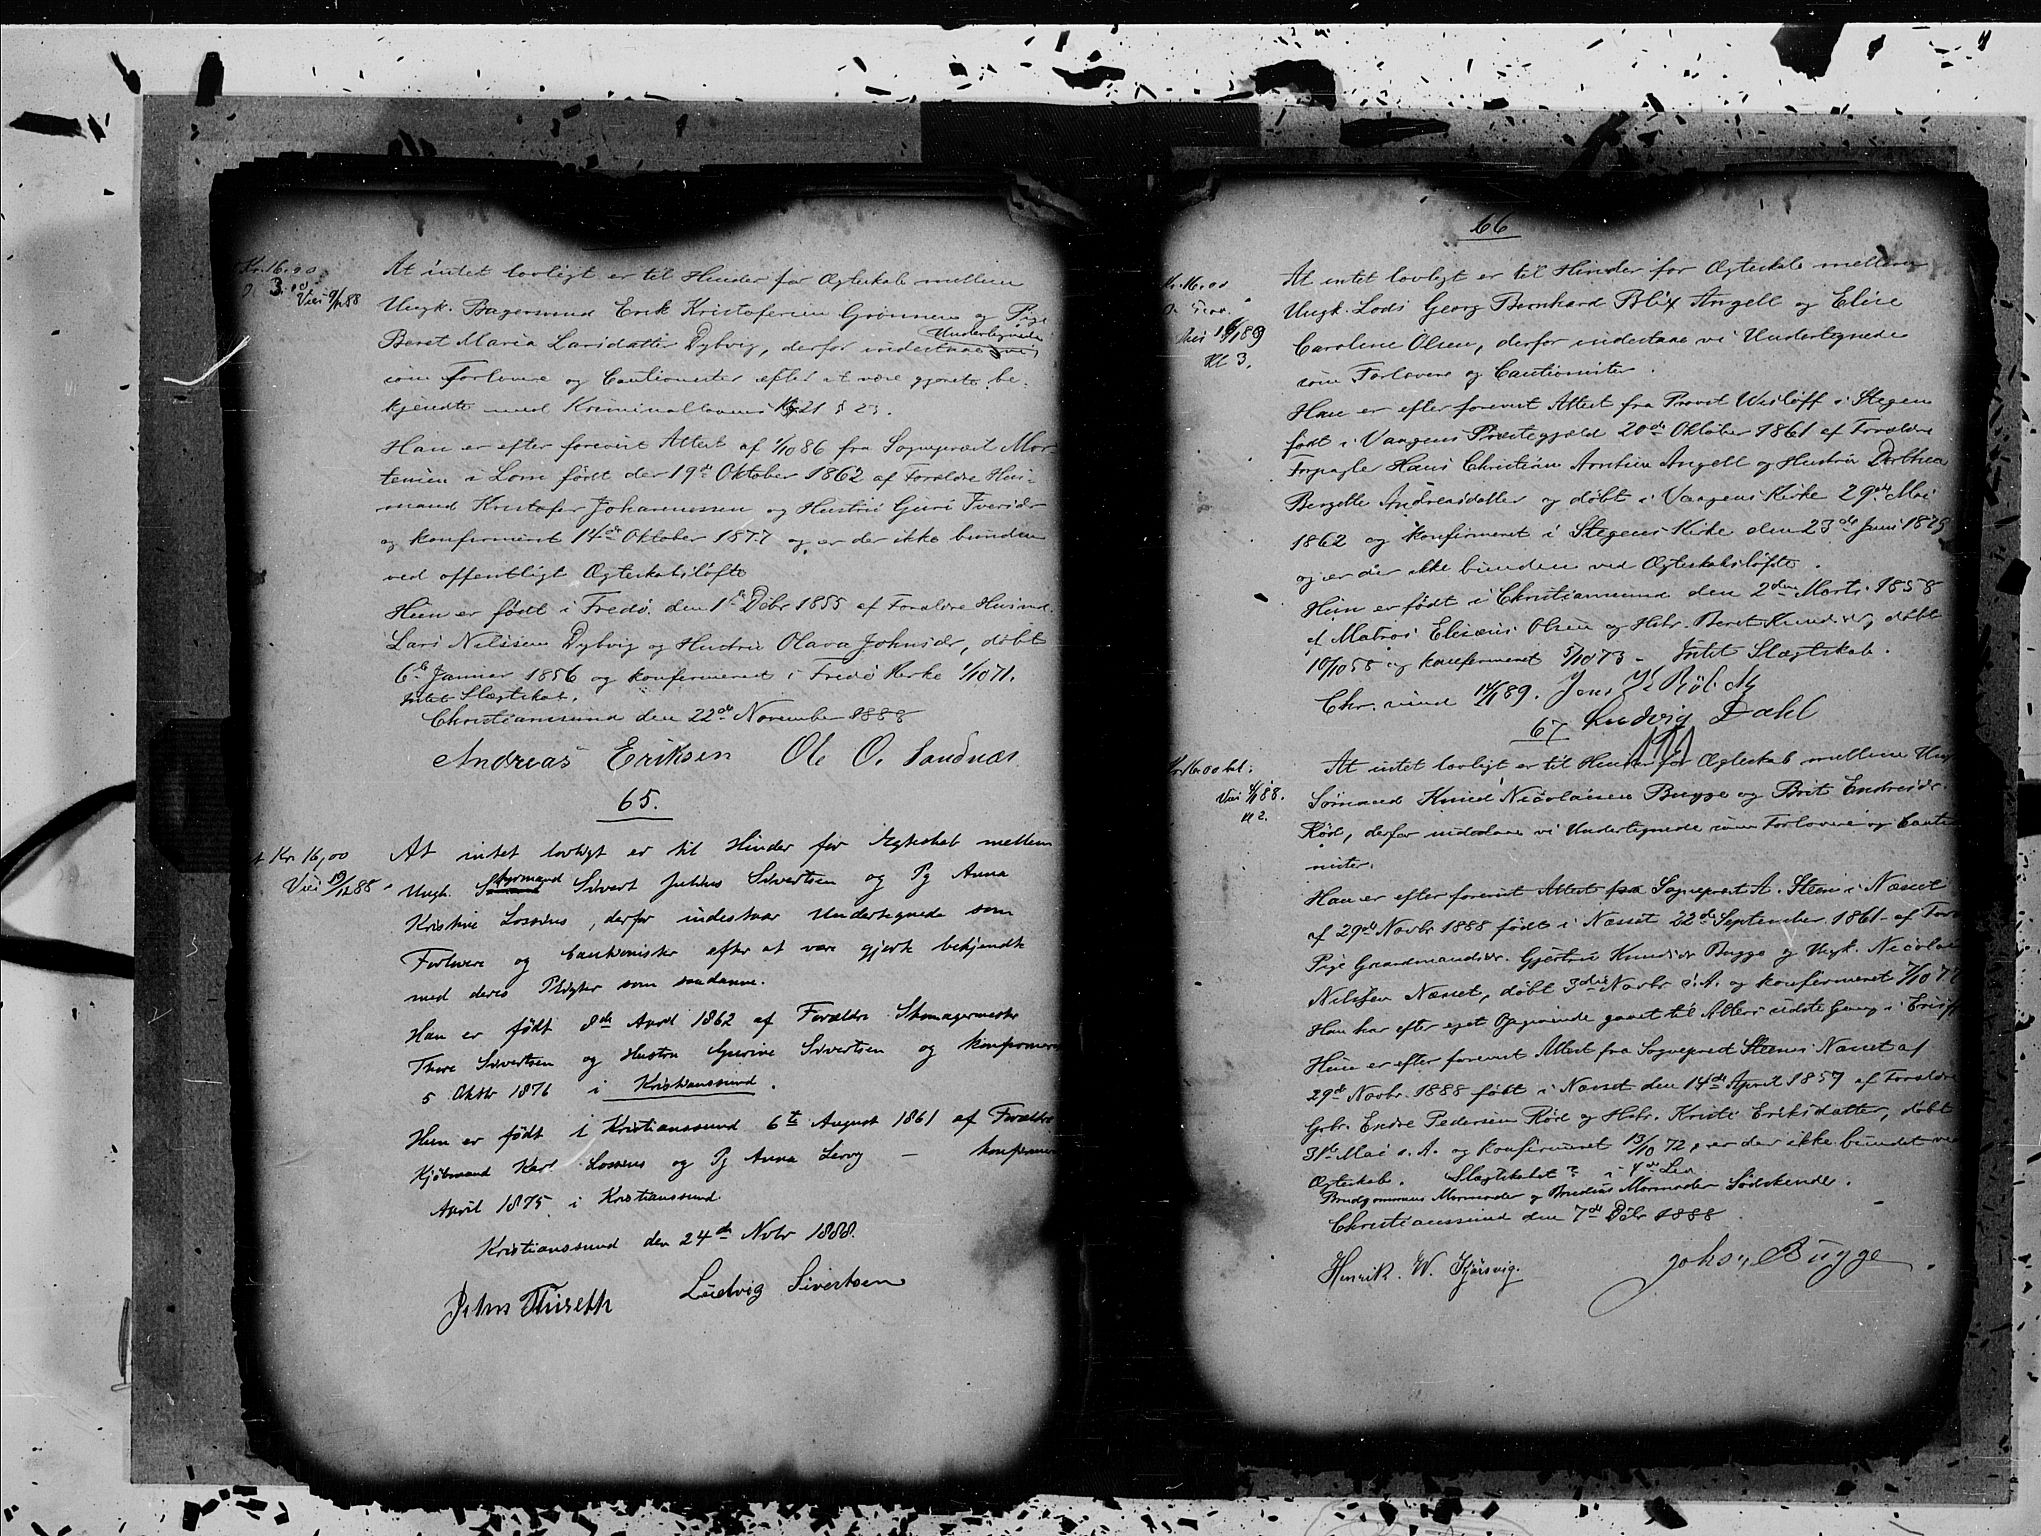 Kr. 16.00
3.00
Viei 9/12 88
At intet lovligt er til Hinder for Ægteskab mellem
Ungk. Bagersvend Erik Kristofersen Grønnen og Pige
Undertegnede
Beret Maria Larsdatter Dybvig, derfor indestaae vi
som Forlovere og Cautionister efter at være gjorte be-
kjendte med Kriminallovens Kp 21 § 23.
Han er efter forevist Attest af 1/10 86 fra Sogneprest Mor-
tensen i Lom født der 19de Oktober 1862 af Forældre Hus-
mand Kristofer Johannessen og Hustru Guri Iversdr
og konfirmeret 14de Oktober 1877 og er der ikke bunden
ved offentligt Ægteskabsløfte
Hun er født i Fredø den 1ste Debr 1855 af Forældre Husmd.
Lars Nilssen Dybvig og Hustru Olava Johnsdr, døbt
6te Januar 1856 og konfirmeret i Fredø Kirke 1/10 71.
Intet Slægtskab.
Christianssund den 22de November 1888
Andreas Eriksen Ole O. Sandnæs
65.
Kr. 16,00
Viei 19/12 88
At intet lovligt er til Hinder for Ægteskab mellem
Ungk. Styrmand Sivert Julius Sivertsen og Pg Anna
Kristine Lossius, derfor indestaar Undertegnede som
Forlovere og Cautionister efter at være gjorte bekjendte
med deres Pligter som saadanne.
Han er født 8de April 1862 af Forældre Skomagermester
Thore Sivertsen og Hustru Gurine Sivertsen og konfirmeret
5 Oktbr 1876 i Kristianssund.
Hun er født i Kristianssund 6te August 1861 af Forældre
Kjøbmand Karl Lossius og Pg Anna Lervg — konfirmeret
April 1875 i Kristianssund
Kristianssund den 24de Nvbr 1888.
Johs Thiseth Ludvig Sivertsen
66
Kr. 16.00
Kl 3.
At intet lovligt er til Hinder for Ægteskab mellem
Ungk. Lods Georg Bernhard Blix Angell og Elise
Caroline Olsen, derfor indestaae vi Undertegnede
som Forlovere og Cautionister.
Han er efter forevist Attest fra Provst Wisløff i Stegen
født i Vaagens Præstegjæld 20de Oktober 1861 af Forældre
Forpagter Hans Christian Arntsen Angell og Hustru Dorthea
Bergitte Andreasdatter og døbt i Vaagens Kirke 29de Mai
1862 og konfirmeret i Stegens Kirke den 23de Juni 1878
og er der ikke bunden ved Ægteskabsløfte.
Hun er født i Christianssund den 2den Marts 1858
af Matros Elisæus Olsen og Hstr. Beret Knudsdr, døbt
10/10 58 og konfirmeret 5/10 73 – Intet Slægtskab.
Chr.sund 14/1 89. Jens
Ludvig Dahl
67
Kr 16.00 bet.
Viei 88.
Kl 2.
At intet lovligt er til Hinder for Ægteskab mellem Ungk
Sømand Knud Nicolaisen Bugge og Brit Endresdr.
Rød, derfor indestaae vi Undertegnede som Forlovere og Cautio-
nister.
Han er efter forevist Attest fra Sogneprest A. Steen i Næsset
af 29de Novbr 1888 født i Næsset 22de September 1861 af Foræ
Pige Gaardmandsdr. Gjertru Knudsdr Bugge og Ungk. Nicolai
Nilssen Næsset, døbt 3die Novbr s. A. og konfirmeret 7/10 77
Han har efter eget Opgivende gaaet til Alters sidste Gang i
Hun er efter forevist Attest fra Sogneprest Steen i Næsset af
29de Novbr. 1888 født i Næsset den 14de April 1857 af Forældre
Grbr. Endre Pedersen Rød og Hstr. Kristi Eriksdatter, døbt
31te Mai s. A. og konfirmeret 13/10 72, er der ikke bundet ved
Ægteskab. Slægtskabet? i 4de Led
Brudgommens Mormoder og Brudens Mormoder Sødskende.
Christianssund den 7de Dcbr 1888
Henrik. W. Kjørsvig. Johs. Bugge